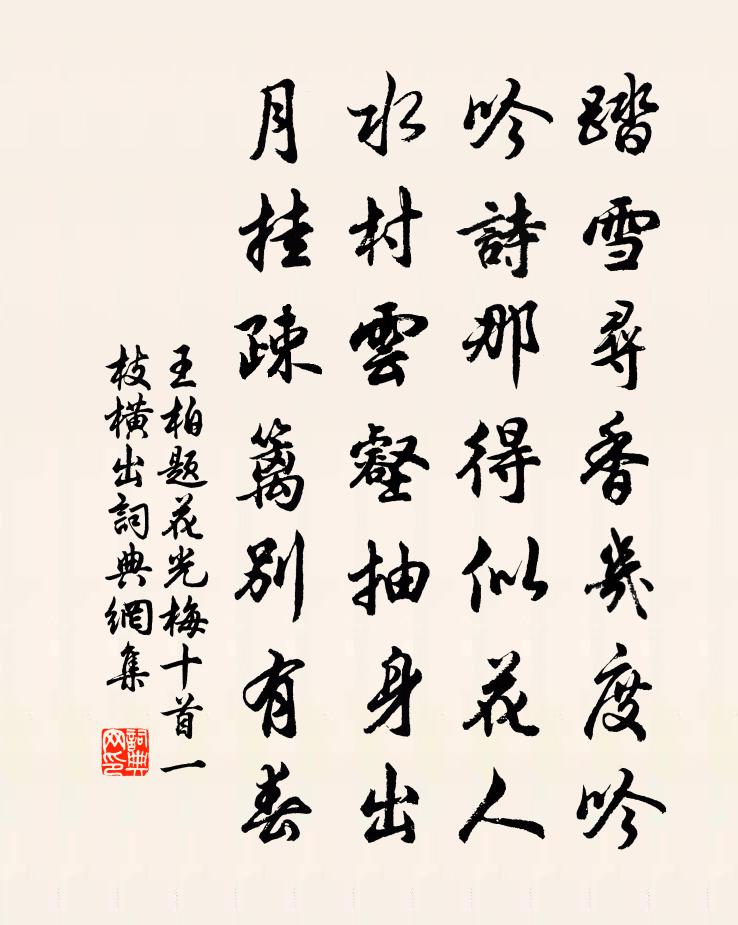 踏雪尋香幾度吟
吟詩那得似花人
水村雲壑抽身出
月挂疎篱別有春
王柏題花光梅十首一
枝橫出詞典網集
詞典
网印